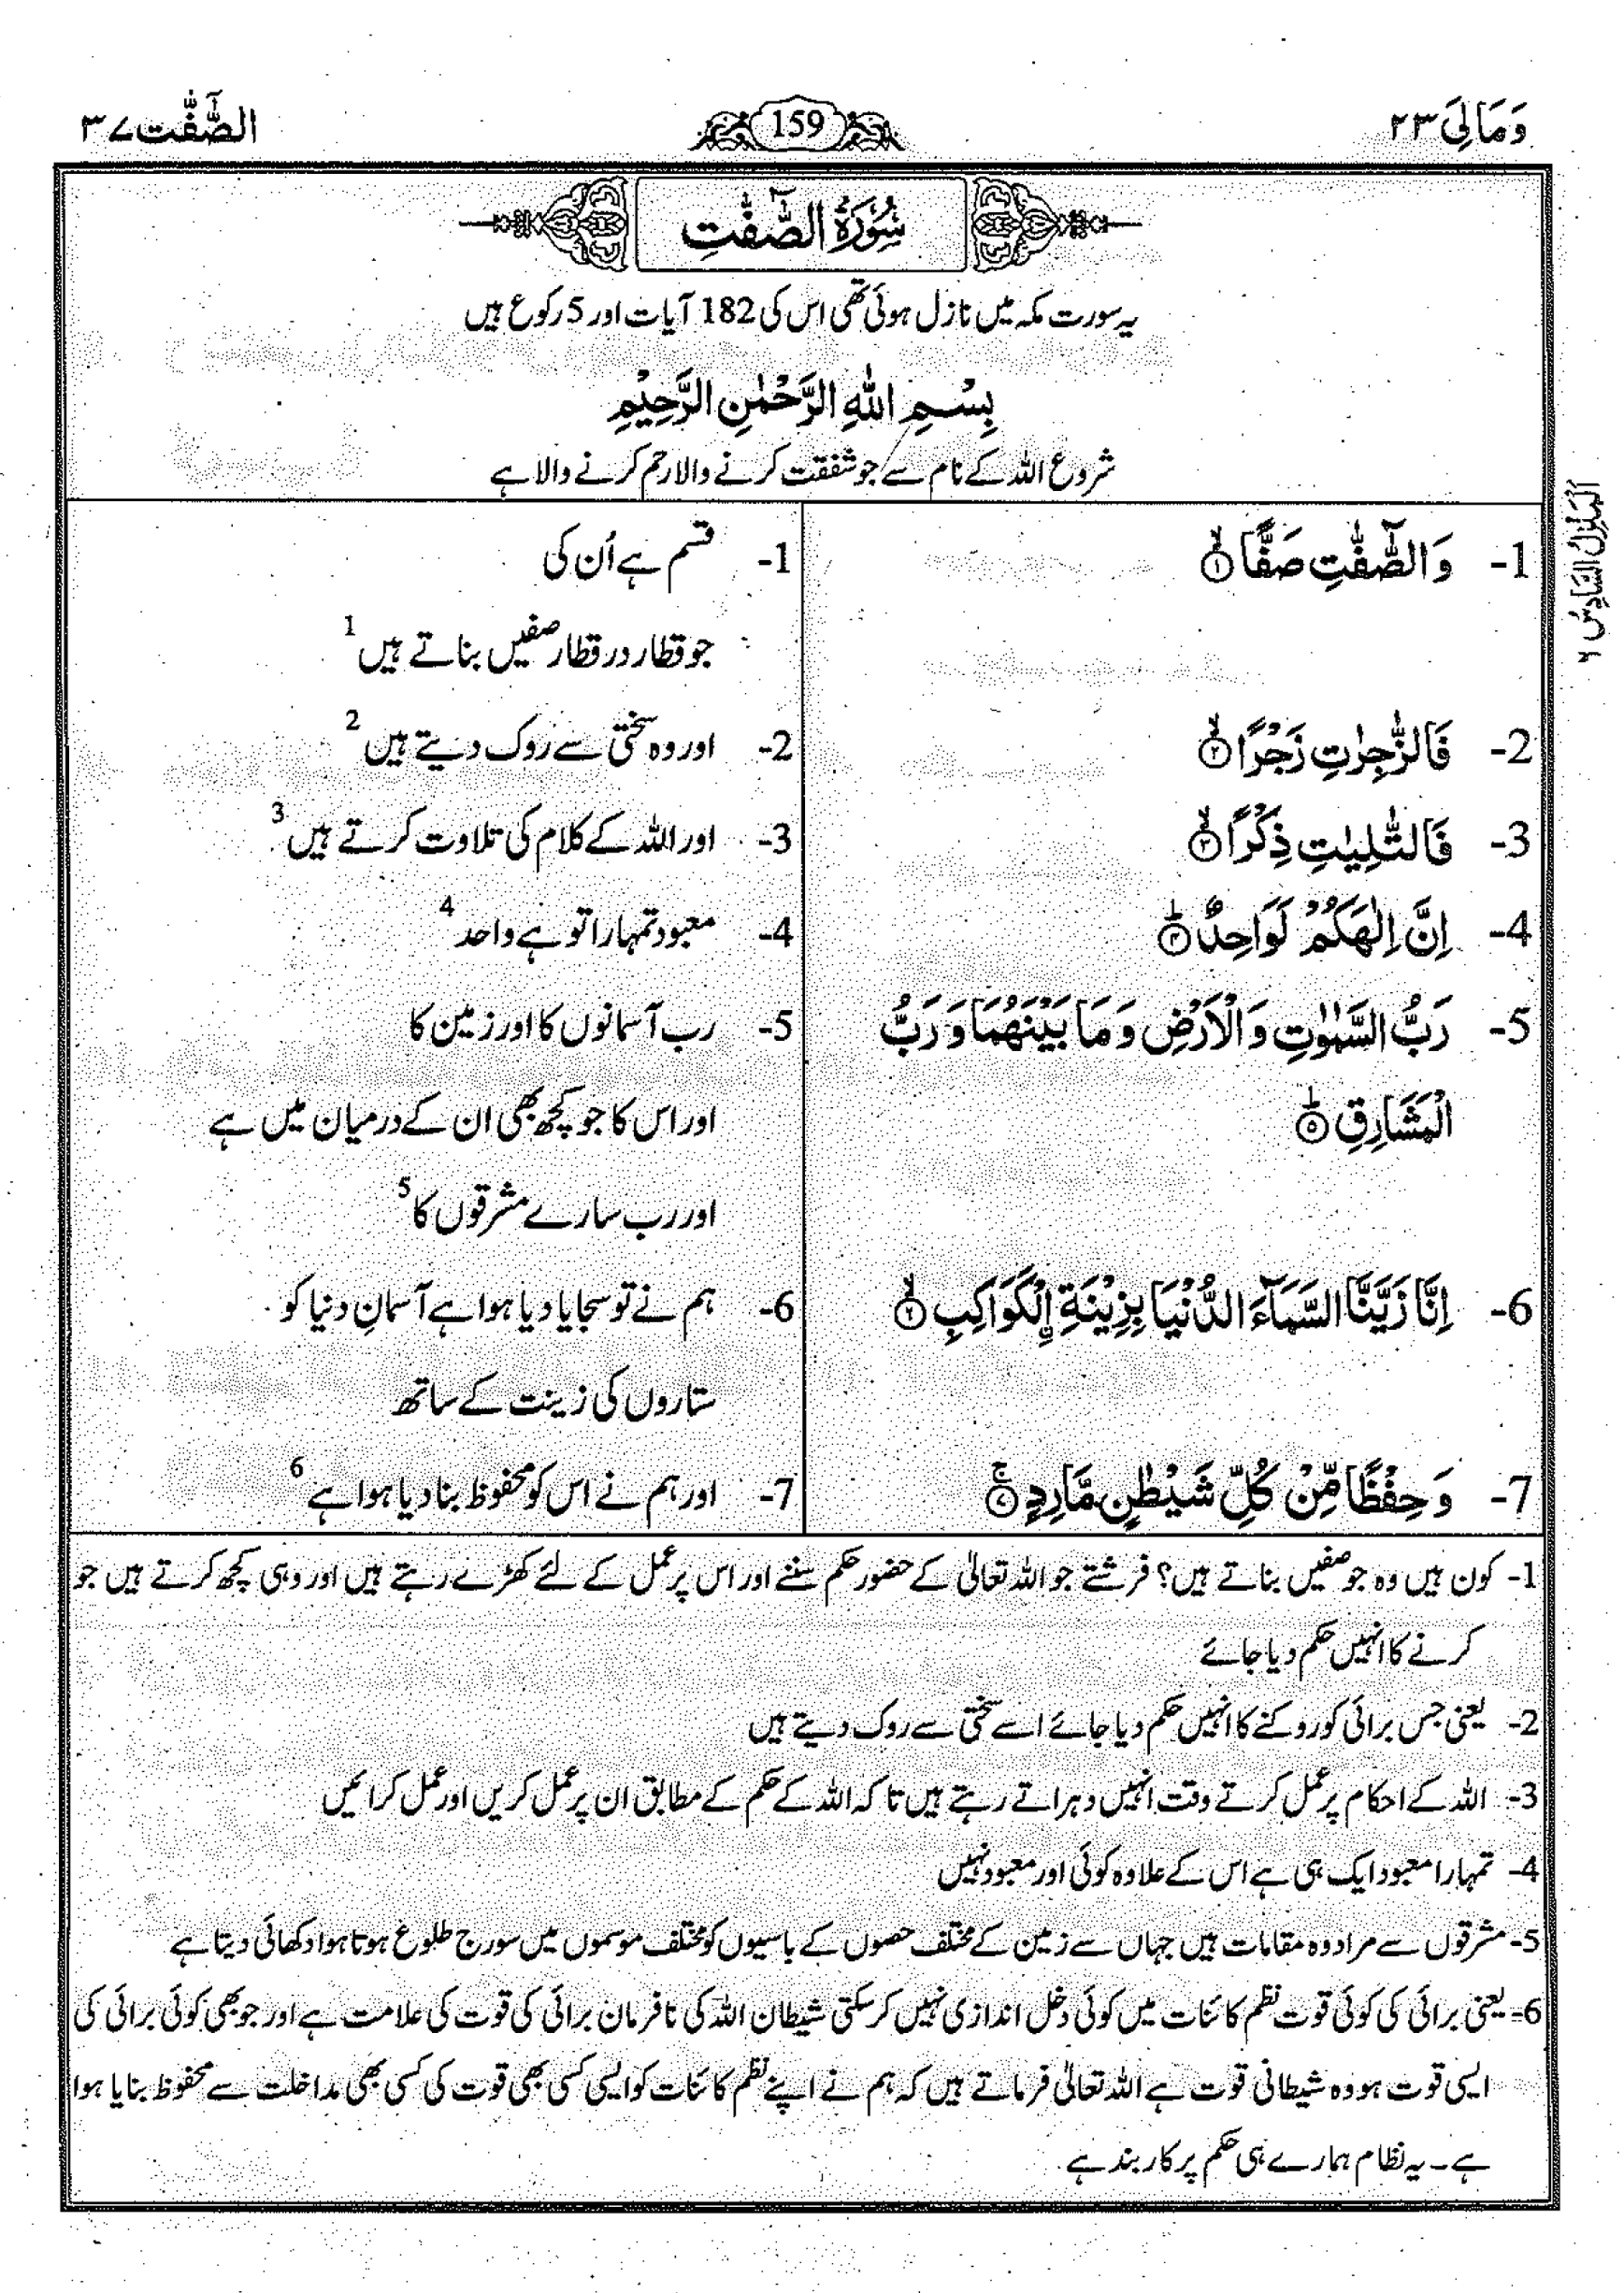 وَمَالِیَ ٢٣
159
الصّٰٓفّٰت ٣٧
سُوْرَةُ الصّٰٓفّٰتِ
یہ سورت مکہ میں نازل ہوئی تھی اس کی 182 آیات اور 5 رکوع ہیں
بِسْمِ اللّٰهِ الرَّحْمٰنِ الرَّحِيْمِ
شروع اللہ کے نام سے جو شفقت کرنے والا رحم کرنے والا ہے
1- وَالصّٰٓفّٰتِ صَفًّا ۙ﴿١﴾
2- فَالزّٰجِرٰتِ زَجْرًا ۙ﴿٢﴾
3- فَالتّٰلِيٰتِ ذِكْرًا ۙ﴿٣﴾
4- اِنَّ اِلٰهَكُمْ لَوَاحِدٌ ؕ﴿٤﴾
5- رَبُّ السَّمٰوٰتِ وَالْاَرْضِ وَمَا بَيْنَهُمَا وَرَبُّ
الْمَشَارِقِ ؕ﴿٥﴾
6- اِنَّا زَيَّنَّا السَّمَآءَ الدُّنْيَا بِزِيْنَةِ ۨالْكَوَاكِبِ ۙ﴿٦﴾
7- وَحِفْظًا مِّنْ كُلِّ شَيْطٰنٍ مَّارِدٍ ۚ﴿٧﴾
1- قسم ہے اُن کی
جو قطار در قطار صفیں بناتے ہیں 1
2- اور وہ سختی سے روک دیتے ہیں 2
3- اور اللہ کے کلام کی تلاوت کرتے ہیں 3
4- معبود تمہارا تو ہے واحد 4
5- رب آسمانوں کا اور زمین کا
اور اس کا جو کچھ بھی ان کے درمیان میں ہے
اور رب سارے مشرقوں کا 5
6- ہم نے تو سجایا دیا ہوا ہے آسمانِ دنیا کو
ستاروں کی زینت کے ساتھ
7- اور ہم نے اس کو محفوظ بنا دیا ہوا ہے 6
1- کون ہیں وہ جو صفیں بناتے ہیں؟ فرشتے جو اللہ تعالیٰ کے حضور حکم سننے اور اس پر عمل کے لئے کھڑے رہتے ہیں اور وہی کچھ کرتے ہیں جو
کرنے کا انہیں حکم دیا جائے
2- یعنی جس برائی کو روکنے کا انہیں حکم دیا جائے اسے سختی سے روک دیتے ہیں
3- اللہ کے احکام پر عمل کرتے وقت انہیں دہراتے رہتے ہیں تاکہ اللہ کے حکم کے مطابق ان پر عمل کریں اور عمل کرائیں
4- تمہارا معبود ایک ہی ہے اس کے علاوہ کوئی اور معبود نہیں
5- مشرقوں سے مراد وہ مقامات ہیں جہاں سے زمین کے مختلف حصوں کے باسیوں کو مختلف موسموں میں سورج طلوع ہوتا ہوا دکھائی دیتا ہے
6- یعنی برائی کی کوئی قوت نظم کائنات میں کوئی دخل اندازی نہیں کر سکتی شیطان اللہ کی نافرمان برائی کی قوت کی علامت ہے اور جو بھی کوئی برائی کی
ایسی قوت ہو وہ شیطانی قوت ہے اللہ تعالیٰ فرماتے ہیں کہ ہم نے اپنے نظم کائنات کو ایسی کسی بھی قوت کی کسی بھی مداخلت سے محفوظ بنایا ہوا
ہے ۔ یہ نظام ہمارے ہی حکم پر کاربند ہے
اَلْمَنْزِلُ السَّادِسُ ٦